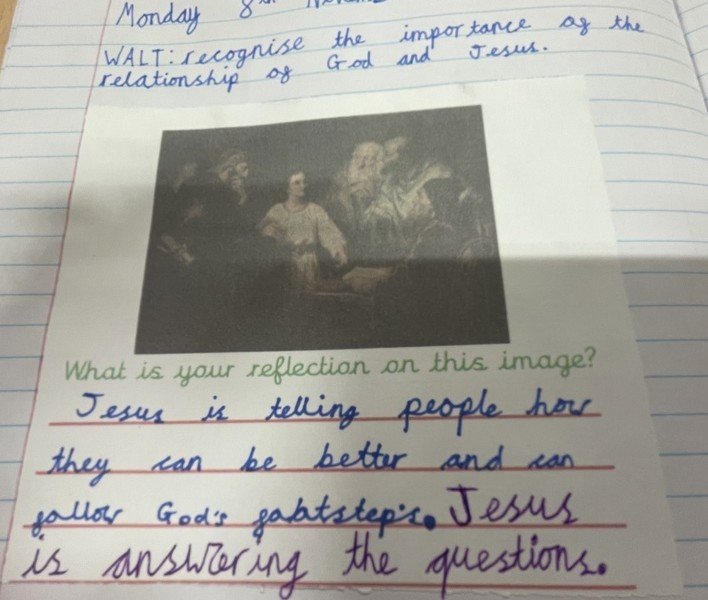 Monday 8th Nove
WALT: recognise the importance of the
relationship of God and Jesus.
What is your reflection on this image?
Jesus is telling people how
they can be better and can
follow God's fabtstep's. Jesus
is answering the questions.